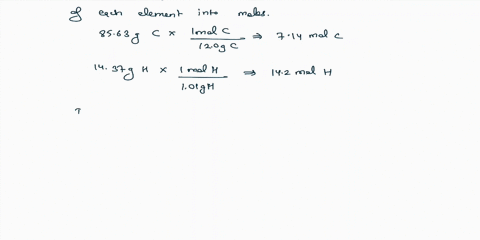 of each element into moles.
85.63g C × 1 mol C / 12.0g C ⇒ 7.14 mol C
14.37g H × 1 mol H / 1.01gH ⇒ 14.2 mol H